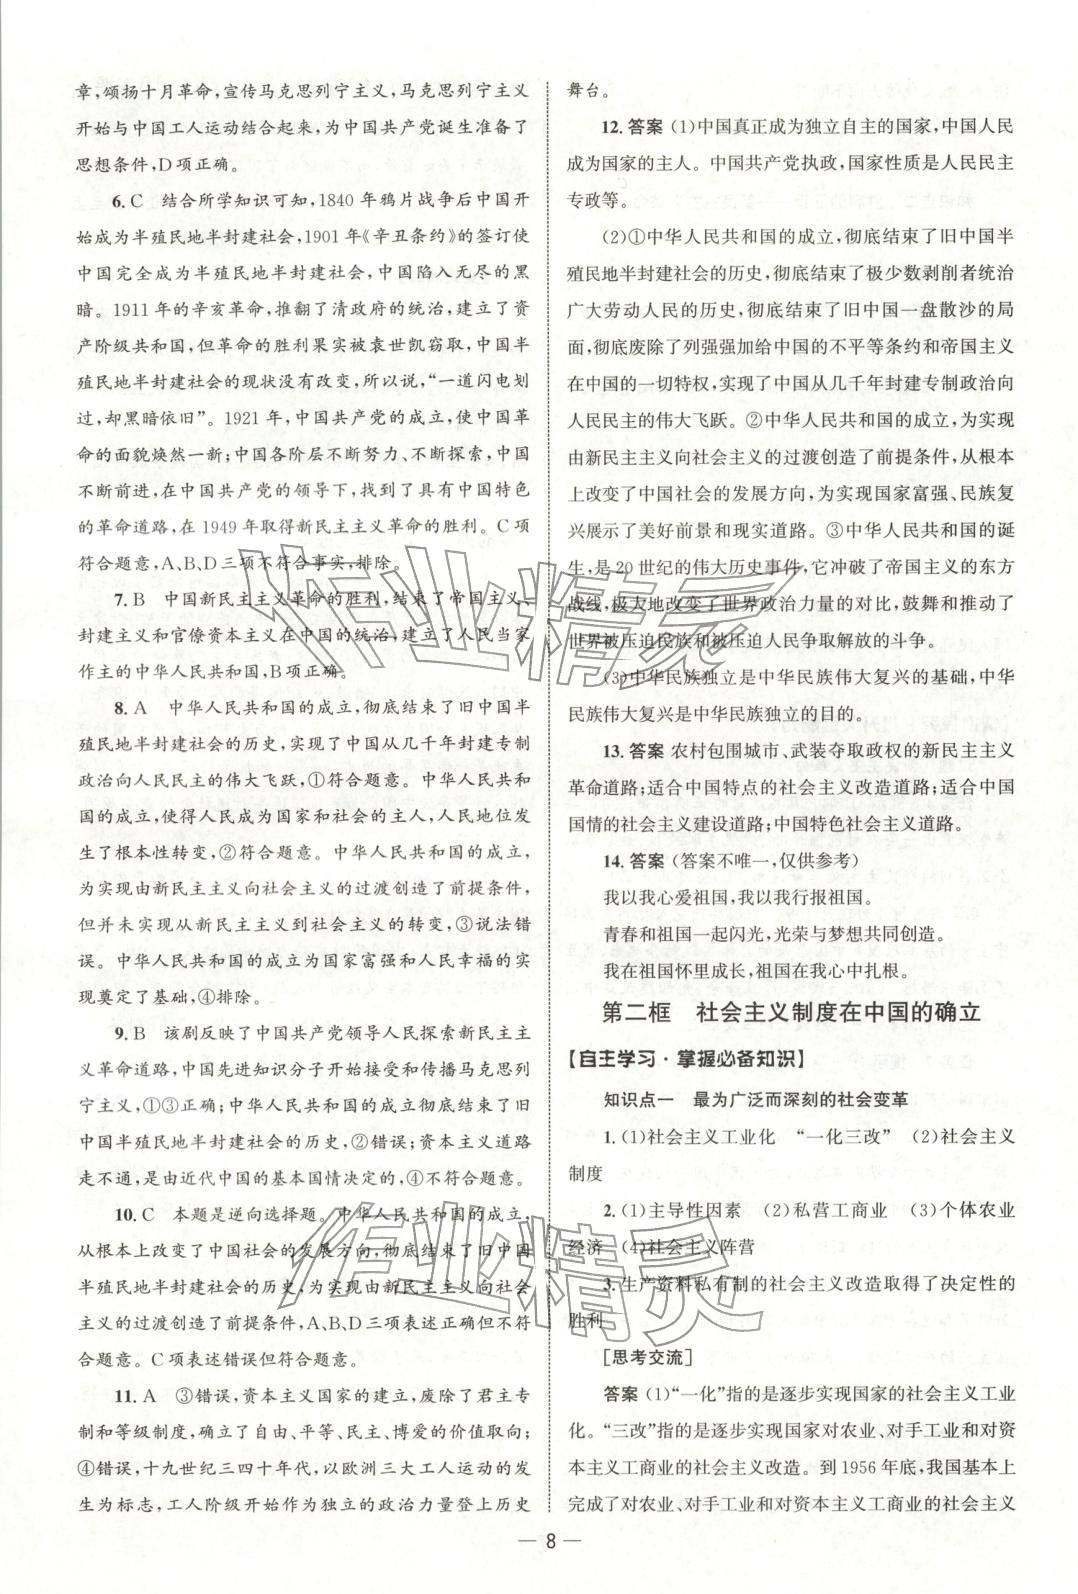 章,颂扬十月革命,宣传马克思列宁主义,马克思列宁主义
开始与中国工人运动结合起来,为中国共产党诞生准备了
思想条件,D项正确。
6.C　结合所学知识可知,1840年鸦片战争后中国开
始成为半殖民地半封建社会,1901年《辛丑条约》的签订使
中国完全成为半殖民地半封建社会,中国陷入无尽的黑
暗。1911年的辛亥革命,推翻了清政府的统治,建立了资
产阶级共和国,但革命的胜利果实被袁世凯窃取,中国半
殖民地半封建社会的现状没有改变,所以说,“一道闪电划
过,却黑暗依旧”。1921年,中国共产党的成立,使中国革
命的面貌焕然一新;中国各阶层不断努力、不断探索,中国
不断前进,在中国共产党的领导下,找到了具有中国特色
的革命道路,在1949年取得新民主主义革命的胜利。C项
符合题意,A、B、D三项不符合事实,排除。
7.B　中国新民主主义革命的胜利,结束了帝国主义、
封建主义和官僚资本主义在中国的统治,建立了人民当家
作主的中华人民共和国,B项正确。
8.A　中华人民共和国的成立,彻底结束了旧中国半
殖民地半封建社会的历史,实现了中国从几千年封建专制
政治向人民民主的伟大飞跃,①符合题意。中华人民共和
国的成立,使得人民成为国家和社会的主人,人民地位发
生了根本性转变,②符合题意。中华人民共和国的成立,
为实现由新民主主义向社会主义的过渡创造了前提条件,
但并未实现从新民主主义到社会主义的转变,③说法错
误。中华人民共和国的成立为国家富强和人民幸福的实
现奠定了基础,④排除。
9.B　该剧反映了中国共产党领导人民探索新民主主
义革命道路,中国先进知识分子开始接受和传播马克思列
宁主义,①③正确;中华人民共和国成立彻底结束了旧
中国半殖民地半封建社会的历史,②错误;资本主义道路
走不通,是由近代中国的基本国情决定的,④不符合题意。
10.C　本题是逆向选择题。中华人民共和国的成立,
从根本上改变了中国社会的发展方向,彻底结束了旧中国
半殖民地半封建社会的历史,为实现由新民主主义向社会
主义的过渡创造了前提条件,A、B、D三项表述正确但不符
合题意。C项表述错误但符合题意。
11.A　③错误,资本主义国家的建立,废除了君主专
制和等级制度,确立了自由、平等、民主、博爱的价值观念;
④错误,十九世纪三四十年代,以欧洲三大工人运动的发
生为标志,工人阶级开始作为独立的政治力量登上历史
舞台。
12.答案 (1)中国真正成为独立自主的国家,中国人民
成为国家的主人。中国共产党执政,国家性质是人民民主
专政等。
(2)①中华人民共和国的成立,彻底结束了旧中国半
殖民地半封建社会的历史,彻底结束了极少数剥削者统治
广大劳动人民的历史,彻底结束了旧中国一盘散沙的局
面,彻底废除了列强强加给中国的不平等条约和帝国主义
在中国的一切特权,实现了中国从几千年封建专制政治向
人民民主的伟大飞跃。②中华人民共和国的成立,为实现
由新民主主义向社会主义的过渡创造了前提条件,从根本
上改变了中国社会的发展方向,为实现国家富强、民族复
兴展示了美好前景和现实道路。③中华人民共和国的诞
生,是20世纪的伟大历史事件,它冲破了帝国主义的东方
战线,极大地改变了世界政治力量的对比,鼓舞和推动了
世界被压迫民族和被压迫人民争取解放的斗争。
(3)中华民族独立是中华民族伟大复兴的基础,中华
民族伟大复兴是中华民族独立的目的。
13.答案 农村包围城市、武装夺取政权的新民主主义
革命道路;适合中国特点的社会主义改造道路;适合中国
国情的社会主义建设道路;中国特色社会主义道路。
14.答案 (答案不唯一,仅供参考)
我以我心爱祖国,我以我行报祖国。
青春和祖国一起闪光,光荣与梦想共同创造。
我在祖国怀里成长,祖国在我心中扎根。
第二框　社会主义制度在中国的确立
【自主学习·掌握必备知识】
知识点一　最为广泛而深刻的社会变革
1.(1)社会主义工业化　“一化三改”　(2)社会主义
制度
2.(1)主导性因素　(2)私营工商业　(3)个体农业
经济　(4)社会主义阵营
3.生产资料私有制的社会主义改造取得了决定性的
胜利
[思考交流]
答案 (1)“一化”指的是逐步实现国家的社会主义工业
化。“三改”指的是逐步实现国家对农业、对手工业和对资
本主义工商业的社会主义改造。到1956年底,我国基本上
完成了对农业、对手工业和对资本主义工商业的社会主义
— 8 —
作业精灵
作业精灵